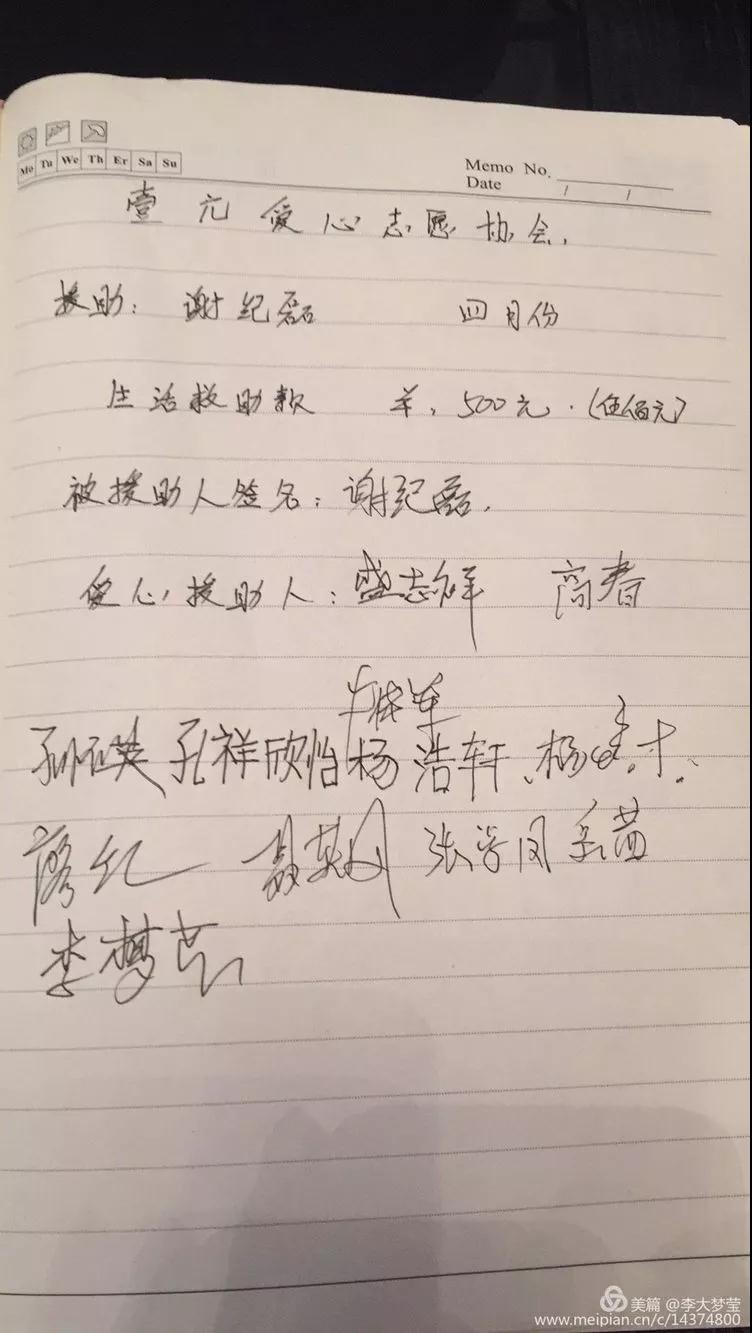 Mo Tu We Th Fr Sa Su
Memo No.
Date / /
壹元爱心志愿协会.
援助: 谢纪磊 四月份
生活救助款 羊, 500元.(伍佰元)
被援助人签名: 谢纪磊.
爱心援助人: 盛志祥
孔祥欣怡 杨浩轩.
张学凤
李梦
美篇 @李大梦莹
www.meipian.cn/c/14374800